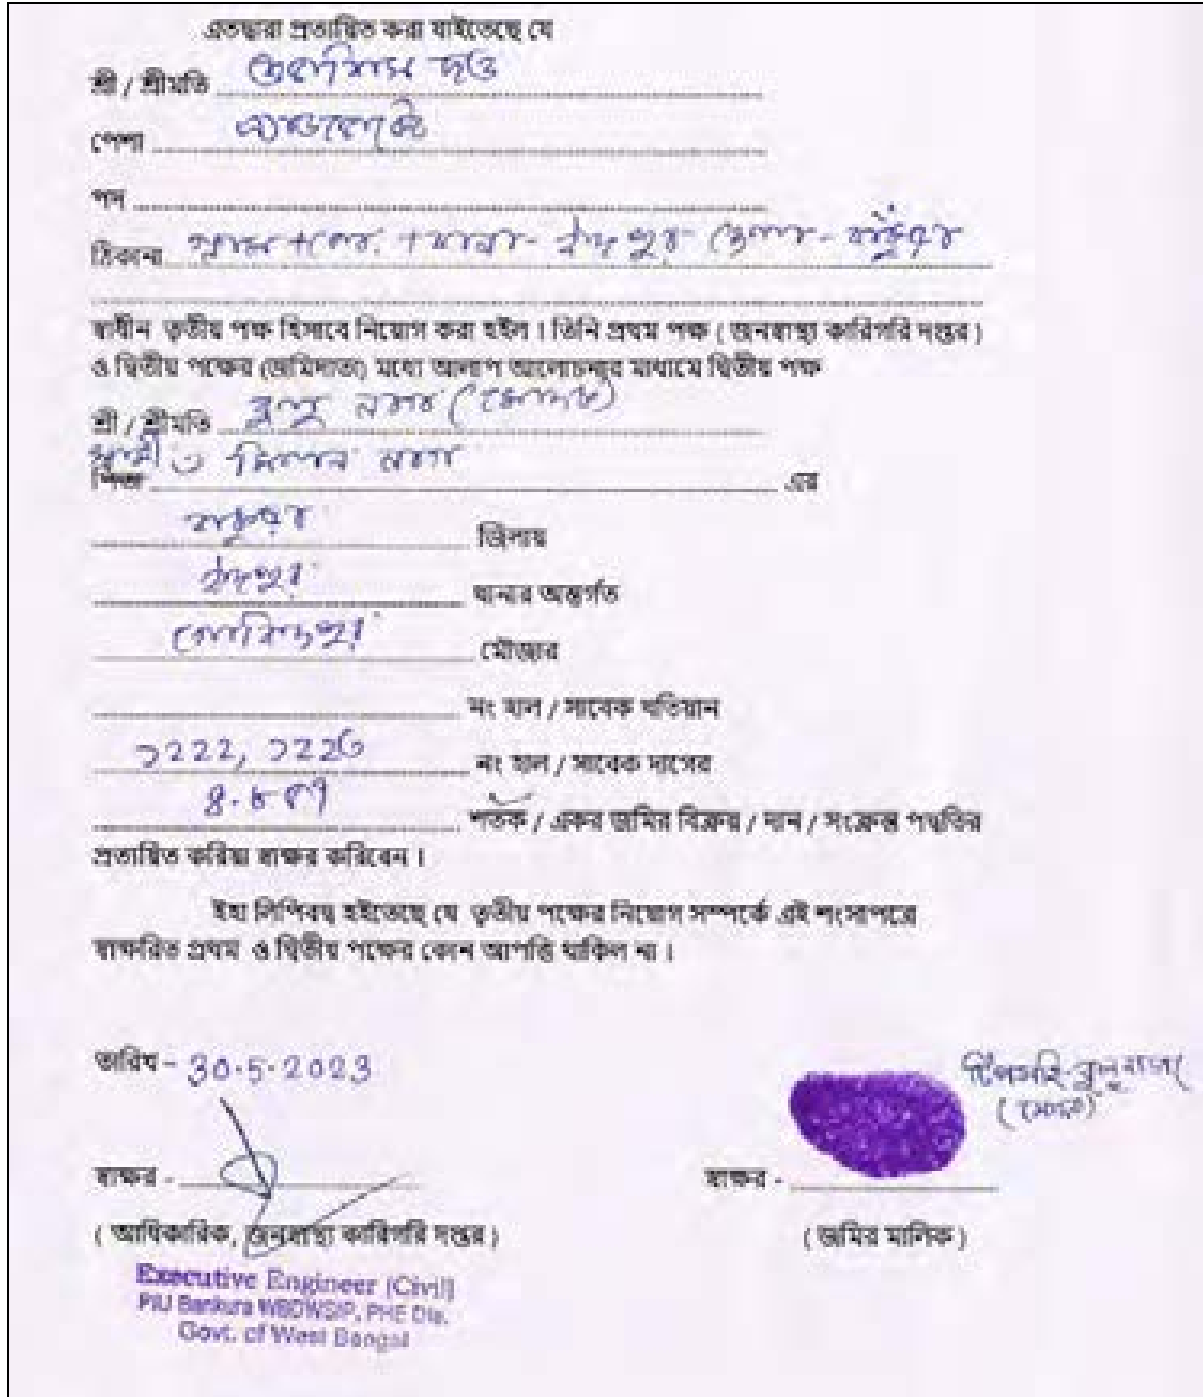 এতদ্বারা প্রত্যয়িত করা যাইতেছে যে
শ্রী / শ্রীমতি দত্ত
পেশা এ্যাডভোকেট
পদ
ঠিকানা গ্রাম + পোঃ + থানা - ইন্দপুর জেলা - বাঁকুড়া
স্বাধীন তৃতীয় পক্ষ হিসাবে নিয়োগ করা হইল । তিনি প্রথম পক্ষ ( জনস্বাস্থ্য কারিগরি দপ্তর )
ও দ্বিতীয় পক্ষের (জমিদাতা) মধ্যে আলাপ আলোচনার মাধ্যমে দ্বিতীয় পক্ষ
শ্রী / শ্রীমতি
পিতা এর
বাঁকুড়া জিলায়
ইন্দপুর থানার অন্তর্গত
গোবিন্দপুর মৌজার
নং হাল / সাবেক খতিয়ান
১২২২, ১২২৩ নং হাল / সাবেক দাগের
৪.৮৫৭ শতক / একর জমির বিক্রয় / দান / সংক্রান্ত পদ্ধতির
প্রত্যয়িত করিয়া স্বাক্ষর করিবেন ।
ইহা লিপিবদ্ধ হইতেছে যে তৃতীয় পক্ষের নিয়োগ সম্পর্কে এই শংসাপত্রে
স্বাক্ষরিত প্রথম ও দ্বিতীয় পক্ষের কোন আপত্তি থাকিল না ।
তারিখ - 30.5.2023
টিপসহি
স্বাক্ষর -
স্বাক্ষর -
( আধিকারিক, জনস্বাস্থ্য কারিগরি দপ্তর )
( জমির মালিক )
Executive Engineer (Civil)
PIU Bankura WBDWSIP, PHE Dte.
Govt. of West Bengal